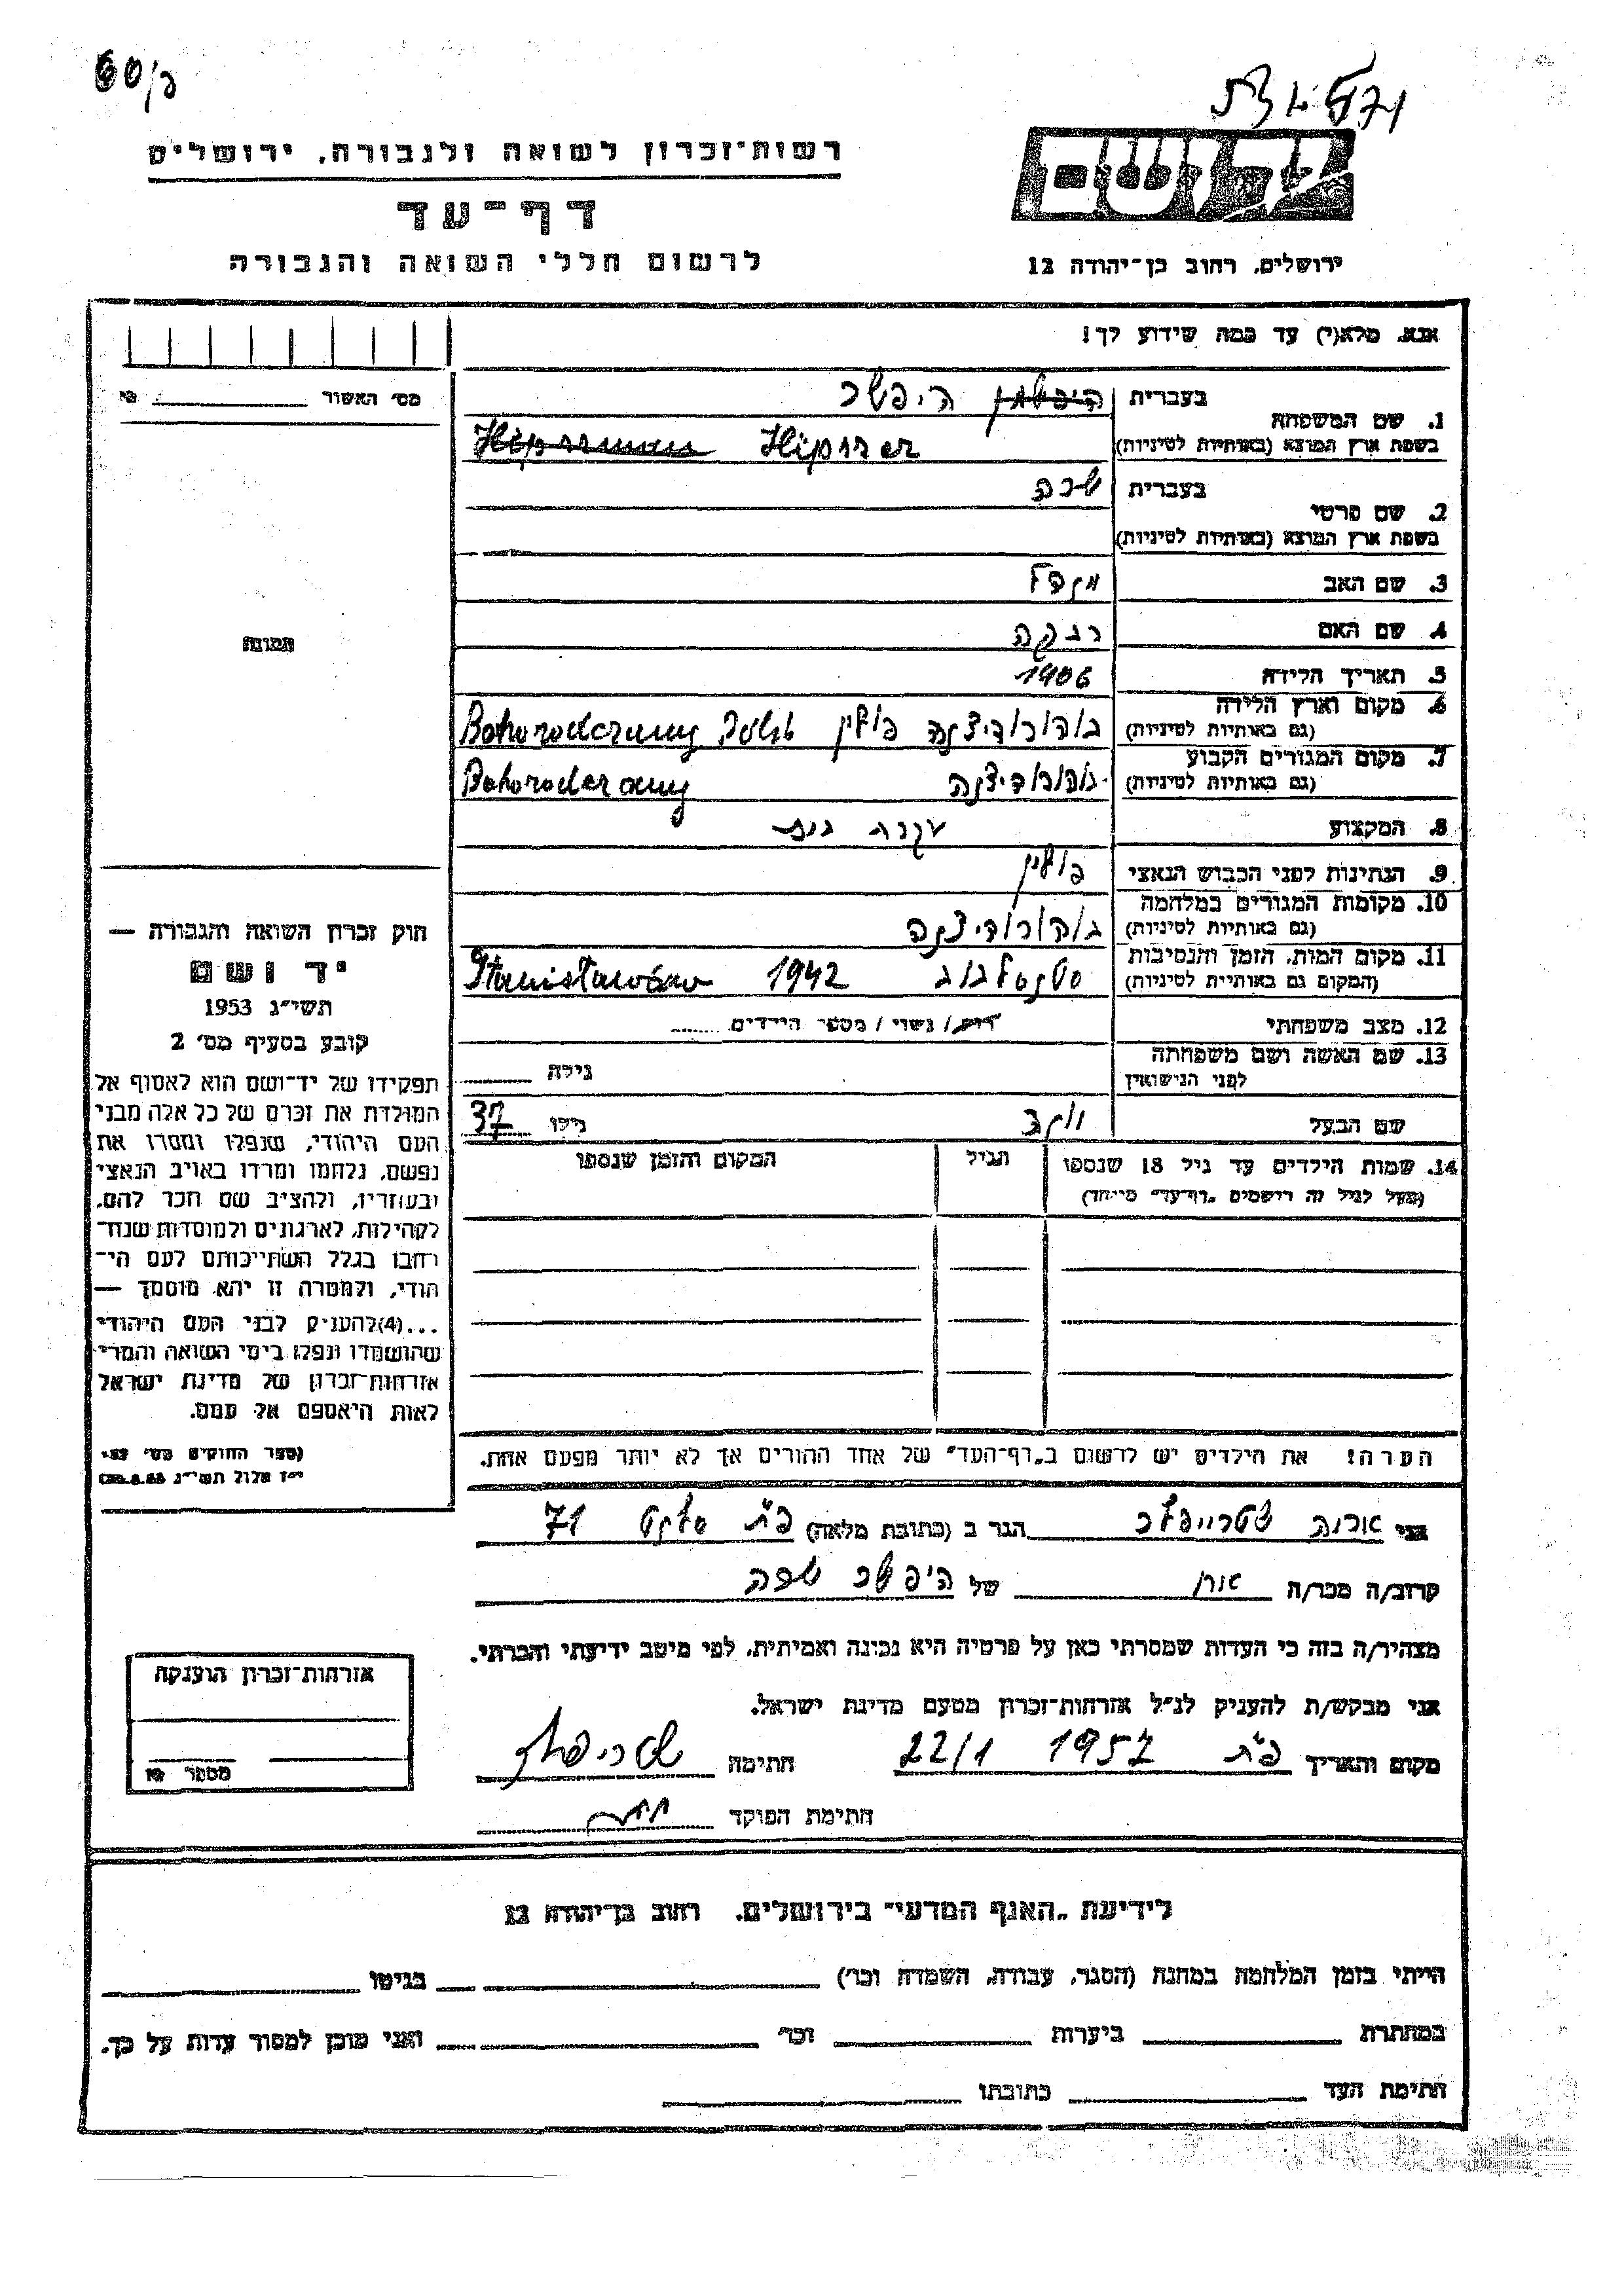 60/ר
רשות־זכרון לשואה ולגבורה, ירושלים
דף־עד
לרשום חללי השואה והגבורה
יד ושם
ירושלים, רחוב בן־יהודה 12
אנא, מלא(י) עד כמה שידוע לך!
מס׳ האשור
1. שם המשפחה
בעברית היפשמן היפשר
בשפת ארץ המוצא (באותיות לטיניות) Hipssman Hipsser
2. שם פרטי
בעברית שרה
בשפת ארץ המוצא (באותיות לטיניות)
3. שם האב מנדל
4. שם האם רבקה
5. תאריך הלידה 1906
6. מקום וארץ הלידה
(גם באותיות לטיניות) בוהורודיצנה פולין Bohorodczany
7. מקום המגורים הקבוע
(גם באותיות לטיניות) בוהורודיצנה Bohorodczany
8. המקצוע עקרת בית
9. הנתינות לפני הכבוש הנאצי פולין
10. מקומות המגורים במלחמה
(גם באותיות לטיניות) בוהורודיצנה
11. מקום המות, הזמן והנסיבות
(המקום גם באותיות לטיניות) סטנסלבוב 1942 Stanisławów
12. מצב משפחתי רווק/ נשוי / מספר הילדים
13. שם האשה ושם משפחתה
לפני הנישואין
גילה
שם הבעל
גילו 37
14. שמות הילדים עד גיל 18 שנספו
(מעל לגיל זה רושמים „דף־עד״ מיוחד)
הגיל
המקום והזמן שנספו
הערה! את הילדים יש לרשום ב„דף־העד״ של אחד ההורים אך לא יותר מפעם אחת.
תמונה
חוק זכרון השואה והגבורה —
יד ושם
תשי״ג 1953
קובע בסעיף מס׳ 2
תפקידו של יד־ושם הוא לאסוף אל
המולדת את זכרם של כל אלה מבני
העם היהודי, שנפלו ומסרו את
נפשם, נלחמו ומרדו באויב הנאצי
ובעוזריו, ולהציב שם וזכר להם,
לקהילות, לארגונים ולמוסדות שנח־
רבו בגלל השתייכותם לעם הי־
הודי, ולמטרה זו יהא מוסמך —
...(4)להעניק לבני העם היהודי
שהושמדו ונפלו בימי השואה והמרי
אזרחות־זכרון של מדינת ישראל
לאות היאספם אל עמם.
(ספר החוקים מס׳ 132,
י״ז אלול תשי״ג 28.8.53)
אני אריה הגר ב (כתובת מלאה) פ״ת 71
קרוב/ה מכר/ה של היפשר שרה
מצהיר/ה בזה כי העדות שמסרתי כאן על פרטיה היא נכונה ואמיתית, לפי מיטב ידיעתי והכרתי.
אני מבקש/ת להעניק לנ״ל אזרחות־זכרון מטעם מדינת ישראל.
מקום ותאריך פ״ת 1957 22/1 חתימה
חתימת הפוקד
אזרחות־זכרון הוענקה
מספר
לידיעת „האגף המדעי״ בירושלים, רחוב בן־יהודה 12
הייתי בזמן המלחמה במחנה (הסגר, עבודה, השמדה וכו׳) בגיטו
במחתרת ביערות וכו׳ ואני מוכן למסור עדות על כך.
חתימת העד כתובתו